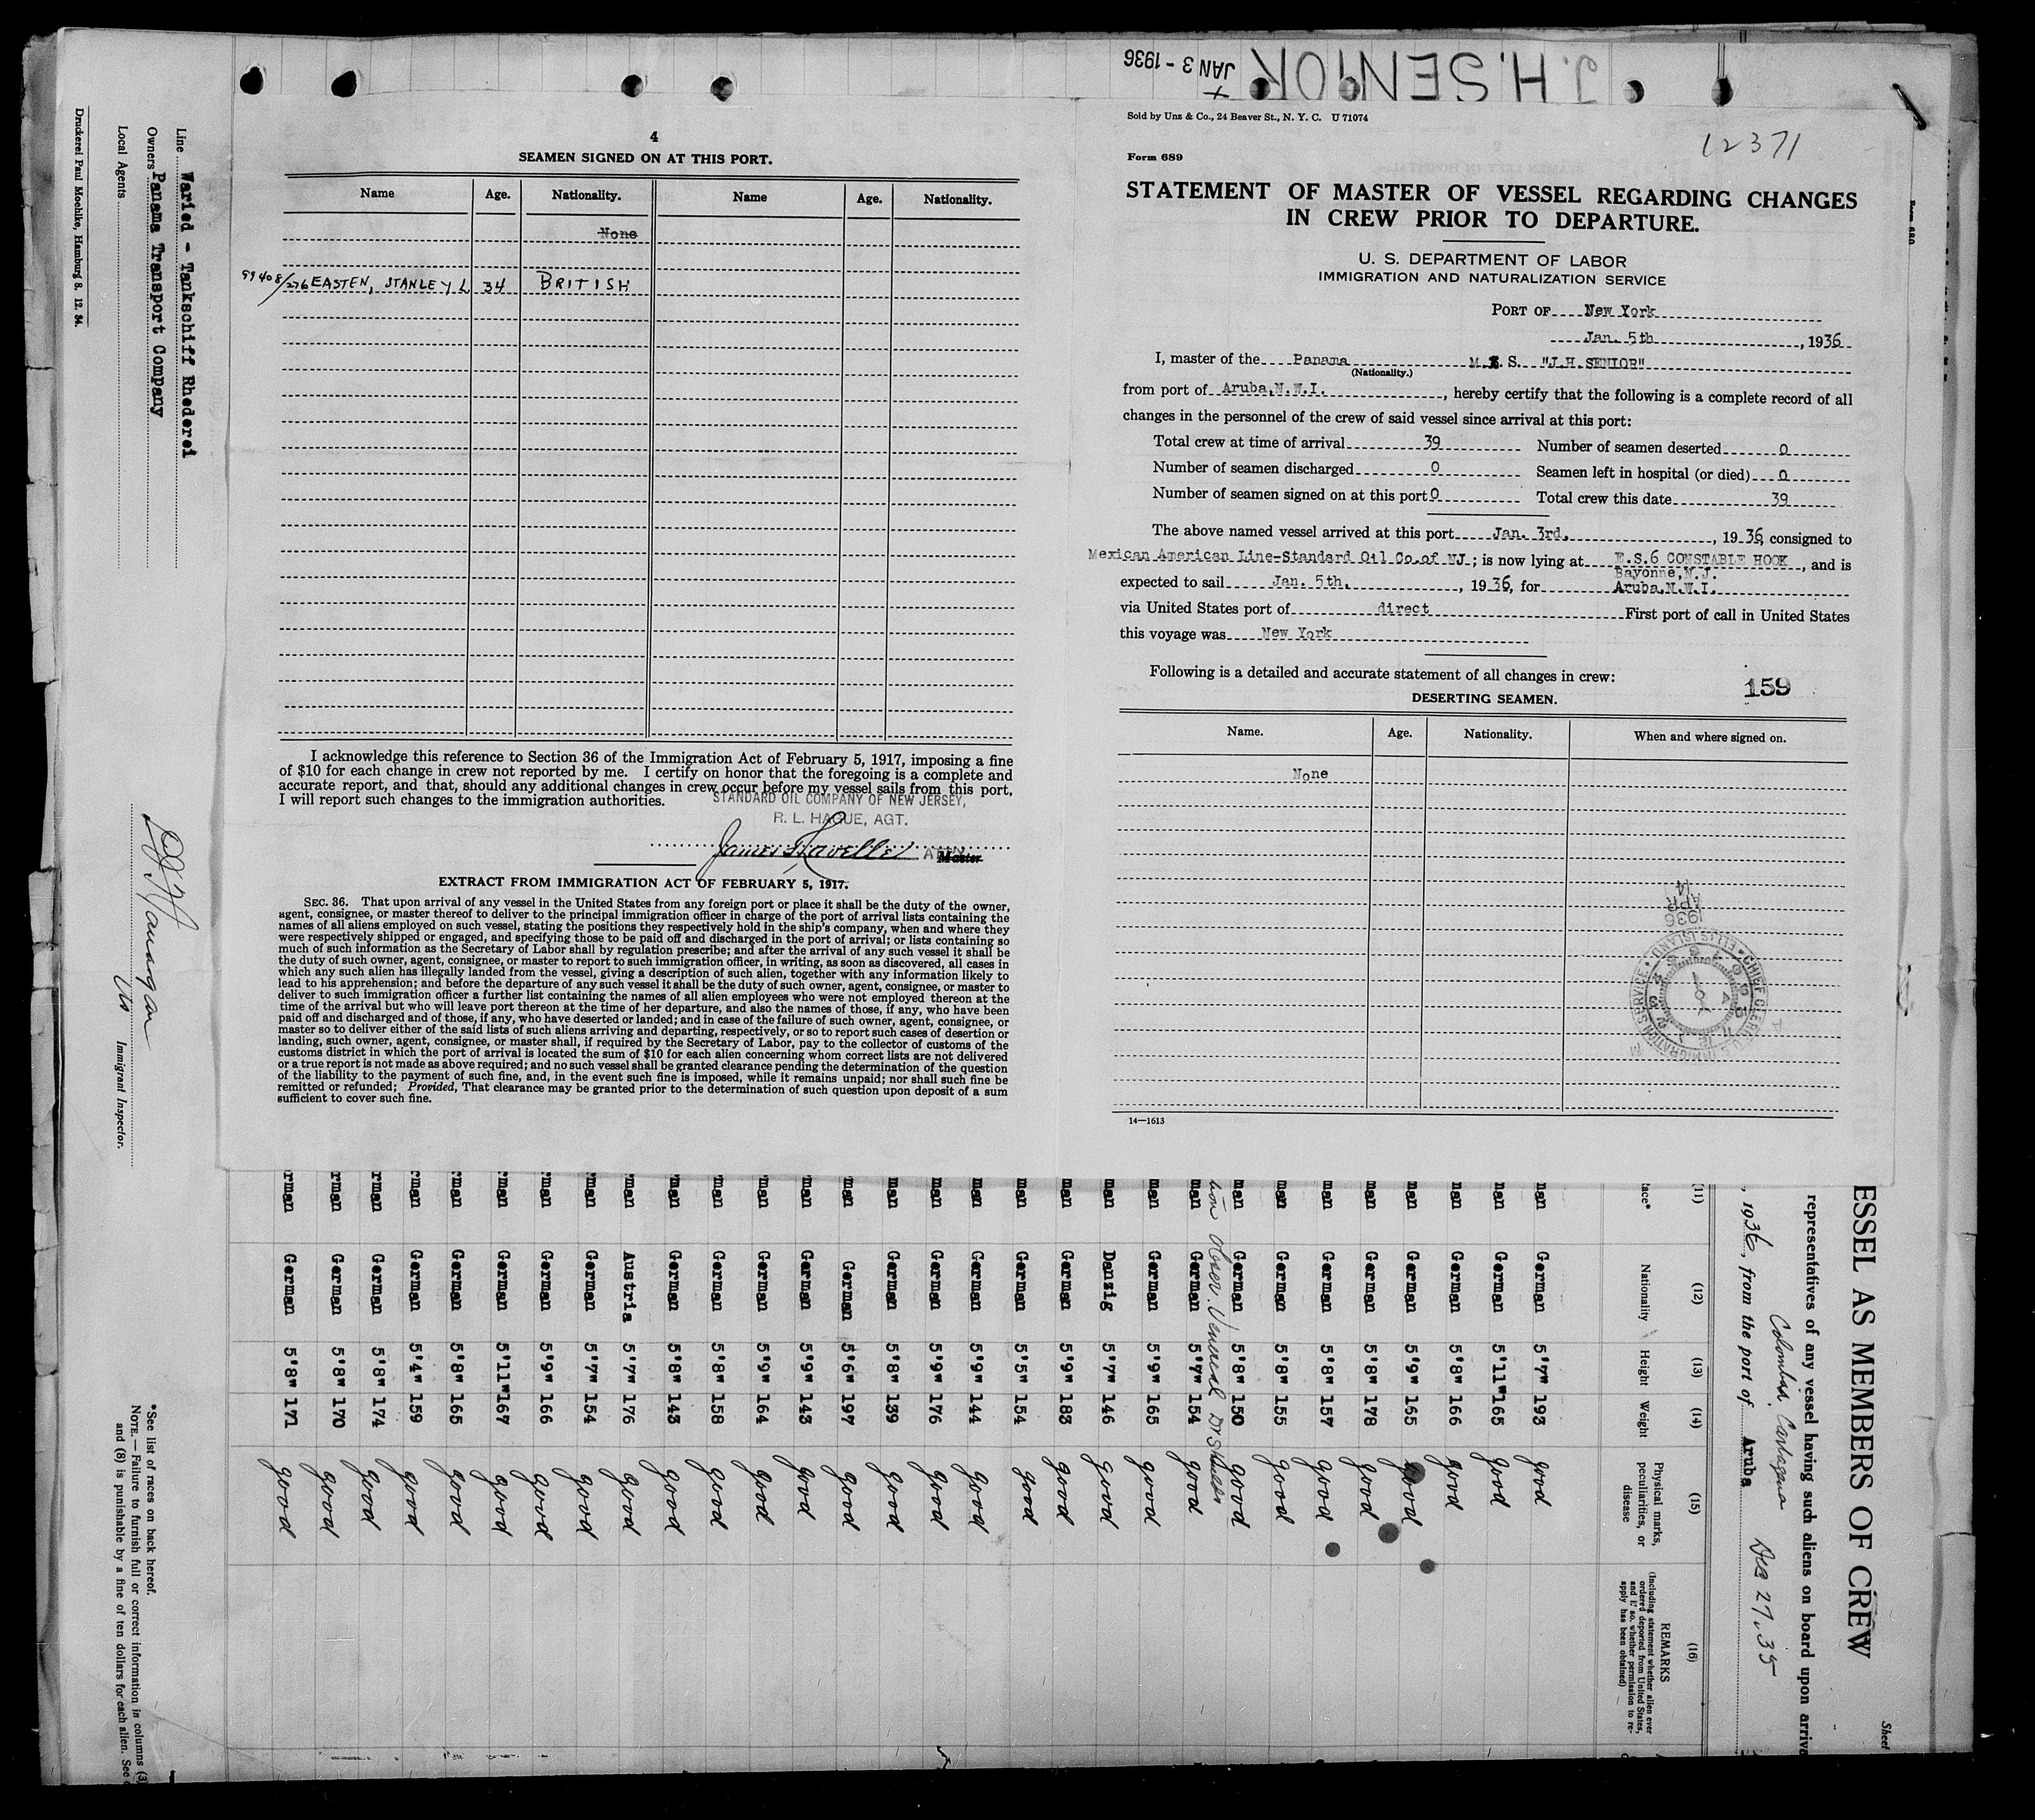 J.H. SENIOR
+ JAN 3 - 1936
4
SEAMEN SIGNED ON AT THIS PORT.
Name Age. Nationality. Name Age. Nationality.
None
99408/276 EASTEN, STANLEY L 34 BRITISH
I acknowledge this reference to Section 36 of the Immigration Act of February 5, 1917, imposing a fine
of $10 for each change in crew not reported by me. I certify on honor that the foregoing is a complete and
accurate report, and that, should any additional changes in crew occur before my vessel sails from this port,
I will report such changes to the immigration authorities.
STANDARD OIL COMPANY OF NEW JERSEY,
R. L. HAGUE, AGT.
Master
EXTRACT FROM IMMIGRATION ACT OF FEBRUARY 5, 1917.
SEC. 36. That upon arrival of any vessel in the United States from any foreign port or place it shall be the duty of the owner,
agent, consignee, or master thereof to deliver to the principal immigration officer in charge of the port of arrival lists containing the
names of all aliens employed on such vessel, stating the positions they respectively hold in the ship's company, when and where they
were respectively shipped or engaged, and specifying those to be paid off and discharged in the port of arrival; or lists containing so
much of such information as the Secretary of Labor shall by regulation prescribe; and after the arrival of any such vessel it shall be
the duty of such owner, agent, consignee, or master to report to such immigration officer, in writing, as soon as discovered, all cases in
which any such alien has illegally landed from the vessel, giving a description of such alien, together with any information likely to
lead to his apprehension; and before the departure of any such vessel it shall be the duty of such owner, agent, consignee, or master to
deliver to such immigration officer a further list containing the names of all alien employees who were not employed thereon at the
time of the arrival but who will leave port thereon at the time of her departure, and also the names of those, if any, who have been
paid off and discharged and of those, if any, who have deserted or landed; and in case of the failure of such owner, agent, consignee, or
master so to deliver either of the said lists of such aliens arriving and departing, respectively, or so to report such cases of desertion or
landing, such owner, agent, consignee, or master shall, if required by the Secretary of Labor, pay to the collector of customs of the
customs district in which the port of arrival is located the sum of $10 for each alien concerning whom correct lists are not delivered
or a true report is not made as above required; and no such vessel shall be granted clearance pending the determination of the question
of the liability to the payment of such fine, and, in the event such fine is imposed, while it remains unpaid; nor shall such fine be
remitted or refunded; Provided, That clearance may be granted prior to the determination of such question upon deposit of a sum
sufficient to cover such fine.
Sold by Unz & Co., 24 Beaver St., N. Y. C. U 71074
12371
Form 689
STATEMENT OF MASTER OF VESSEL REGARDING CHANGES
IN CREW PRIOR TO DEPARTURE.
U. S. DEPARTMENT OF LABOR
IMMIGRATION AND NATURALIZATION SERVICE
PORT OF New York
Jan. 5th, 1936
I, master of the Panama M.S. S. "J.H.SENIOR"
(Nationality.)
from port of Aruba,N.W.I., hereby certify that the following is a complete record of all
changes in the personnel of the crew of said vessel since arrival at this port:
Total crew at time of arrival 39 Number of seamen deserted 0
Number of seamen discharged 0 Seamen left in hospital (or died) 0
Number of seamen signed on at this port 0 Total crew this date 39
The above named vessel arrived at this port Jan. 3rd, 1936, consigned to
Mexican American Line-Standard Oil Co.of NJ; is now lying at E.S.6 CONSTABLE HOOK, and is
Bayonne,N.J.
expected to sail Jan. 5th., 1936, for Aruba,N.W.I.
via United States port of direct First port of call in United States
this voyage was New York
Following is a detailed and accurate statement of all changes in crew:
159
DESERTING SEAMEN.
Name. Age. Nationality. When and where signed on.
None
1936
APR
14
CHIEF CLERK U.S. IMMIGRATION SERVICE ELLIS ISLAND
14—1613
Form 689
Line Waried - Tankschiff Rhederei
Owners Panama Transport Company
Local Agents
Druckerei Paul Moehlke, Hamburg 8. 12. 34.
Immigrant Inspector.
ESSEL AS MEMBERS OF CREW
Sheet
representatives of any vessel having such aliens on board upon arriva
Colombia, Cartagena Dec 27, 35
, 1936, from the port of Aruba
(11) (12) (13) (14) (15) (16)
ace* Nationality Height Weight Physical marks, peculiarities, or disease
REMARKS
(Including statement whether alien ever
ordered deported from United States,
and if so, whether permission to re-
apply has been obtained)
nan German 5'7" 193 good
nan German 5'11" 165 good
nan German 5'8" 166 good
man German 5'9" 165 good
man German 5'8" 178 good
man German 5'8" 157 good
man German 5'8" 155 good
man German 5'8" 150 good
man German 5'7" 154 good
man German 5'9" 165 good
man Danzig 5'7" 146 good
man German 5'9" 183 good
man German 5'5" 154 good
man German 5'9" 144 good
man German 5'9" 176 good
man German 5'8" 139 good
man German 5'6" 197 good
man German 5'9" 143 good
man German 5'9" 164 good
man German 5'8" 158 good
man German 5'8" 143 good
man Austria 5'7" 176 good
rman German 5'7" 154 good
rman German 5'9" 166 good
rman German 5'11" 167 good
rman German 5'8" 165 good
rman German 5'4" 159 good
rman German 5'8" 174 good
rman German 5'8" 170 good
rman German 5'8" 171 good
*See list of races on back hereof.
NOTE.— Failure to furnish full or correct information in columns (3)
and (8) is punishable by a fine of ten dollars for each alien. See